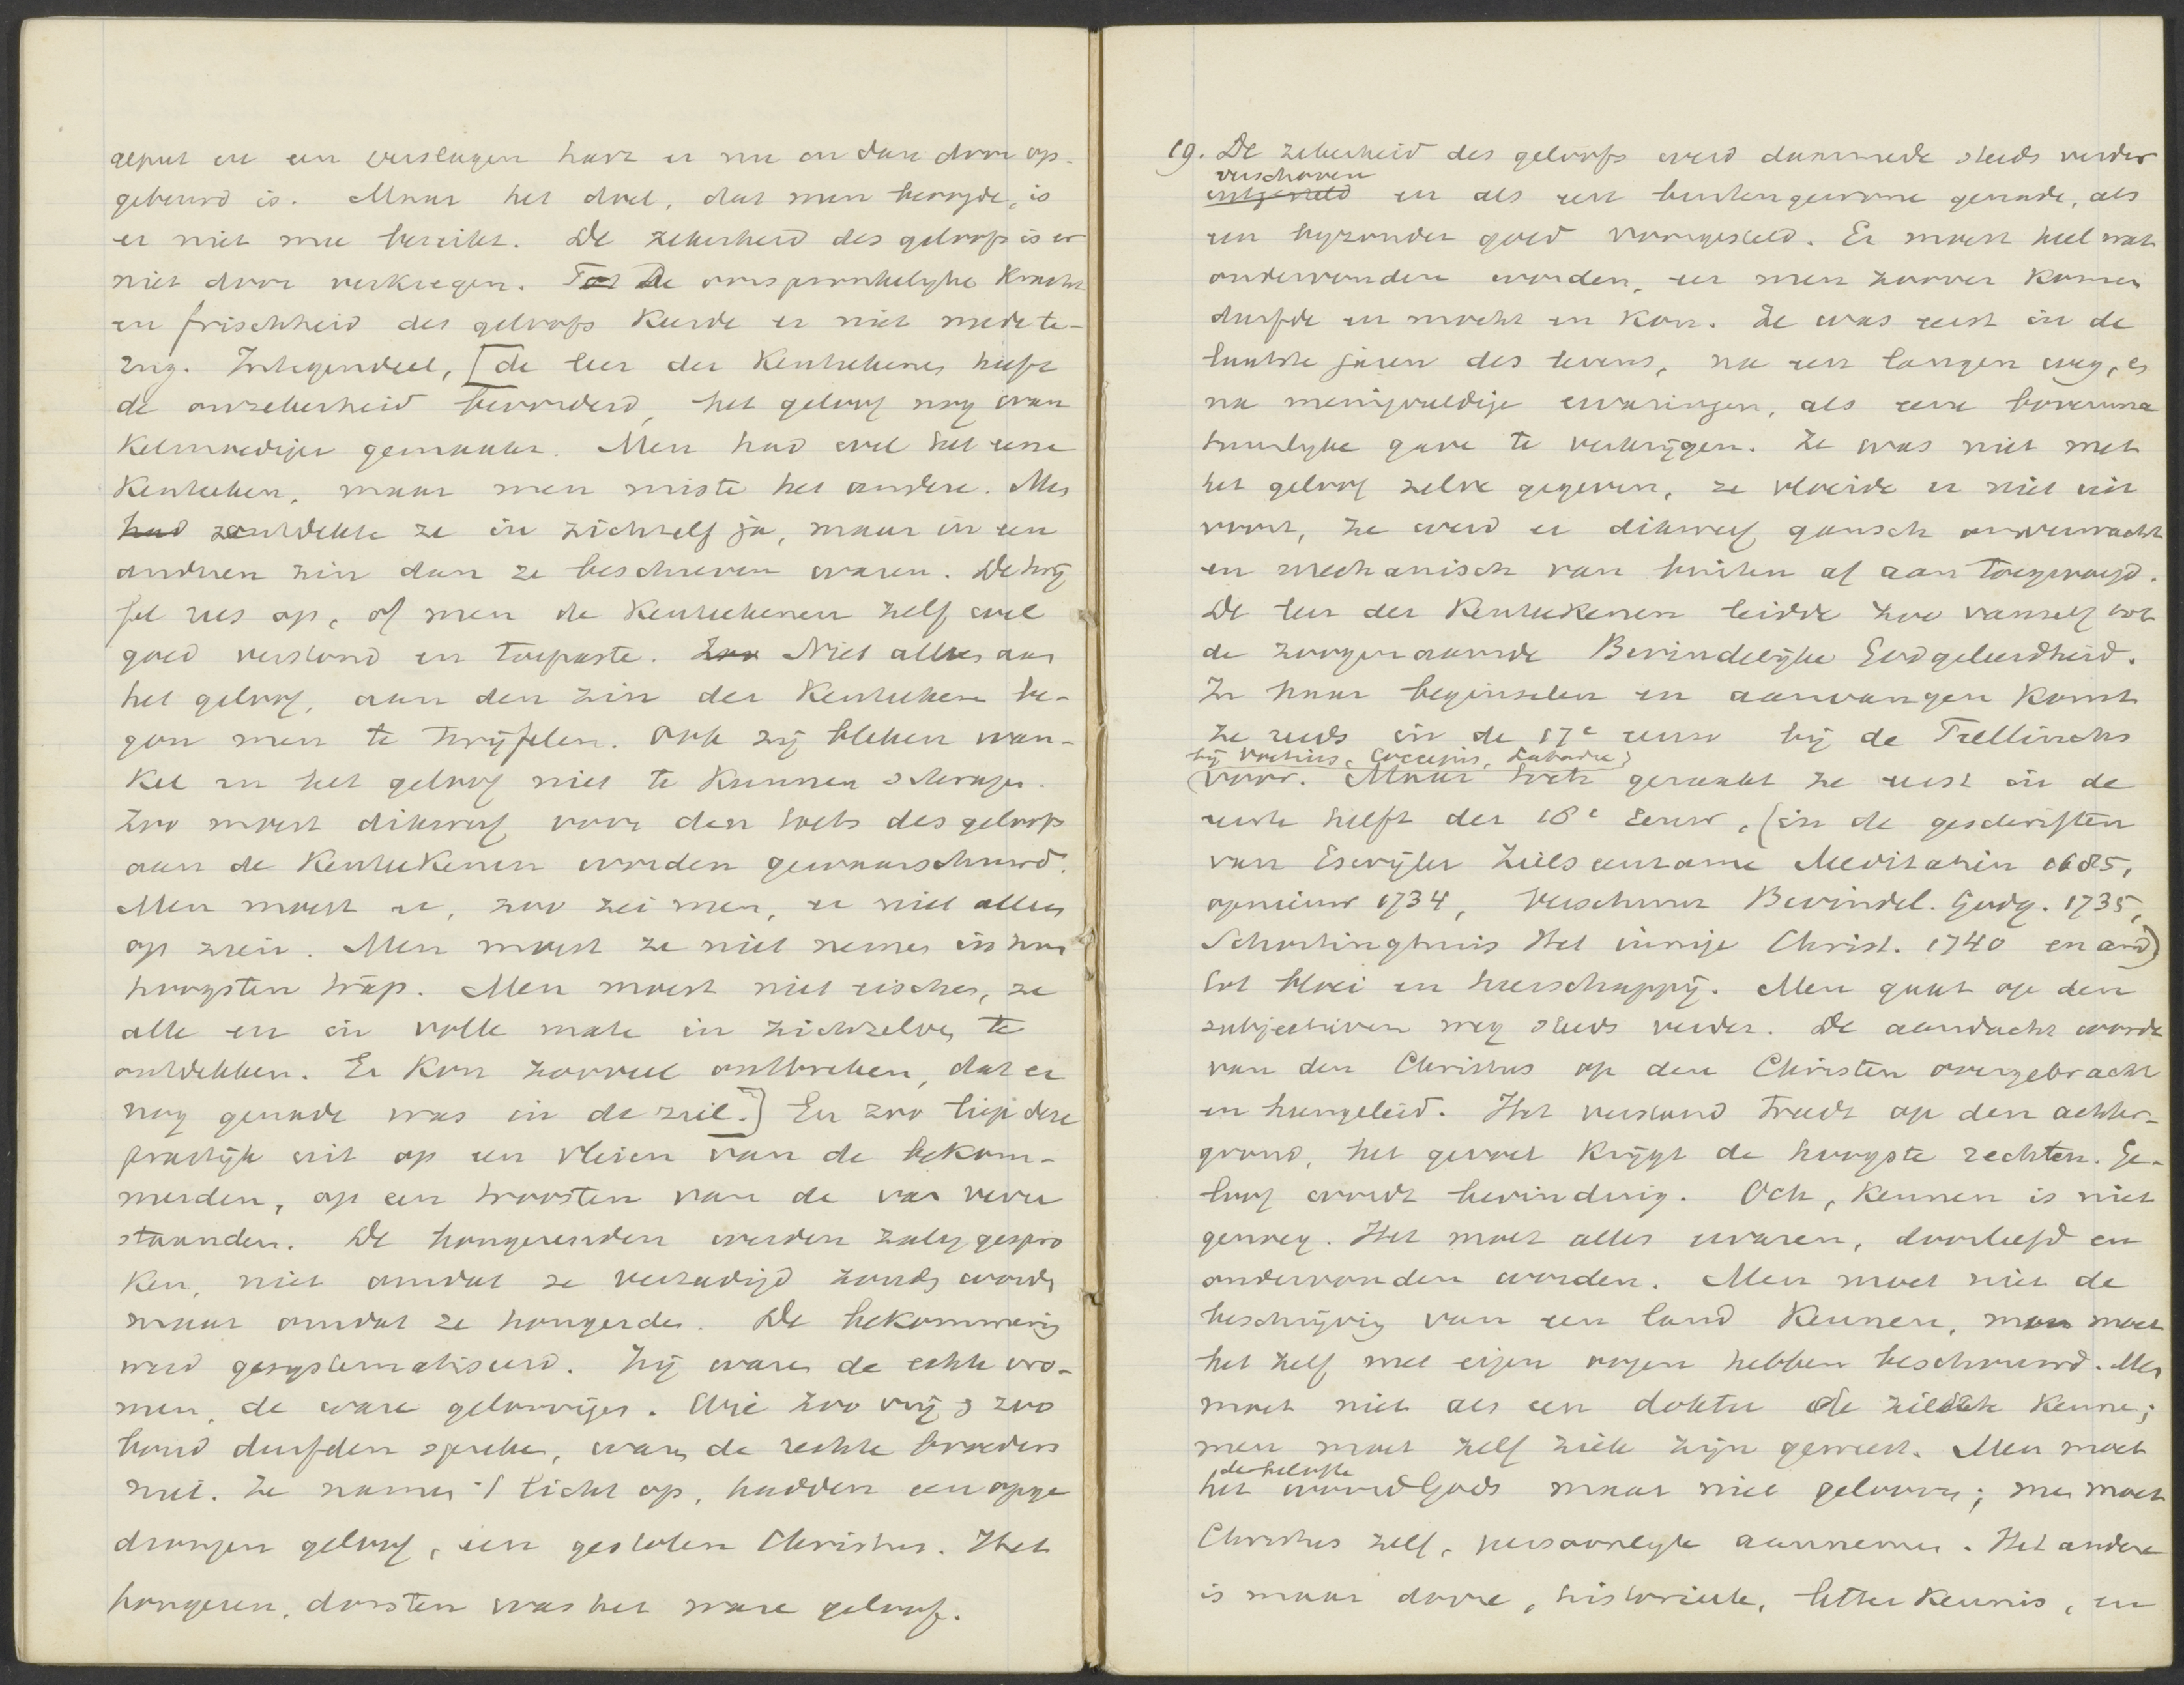 geput en een verslagen hart er nu en dan door op-
gebeurd is. Maar het doel, dat men beoogde, is
er niet mee bereikt. De zekerheid des geloofs is er
niet door verkregen. Tot De oorspronkelyke kracht
en frischheid des geloofs keerde er niet mede te-
rug. Integendeel, [de leer der kenteekenen heeft
de onzekerheid bevorderd, het geloof nog wan
kelmoediger gemaakt. Men had wel het eene
kenteeken, maar men miste het andere. Men
had ontdekte ze in zichzelf ja, maar in een
anderen zin dan ze beschreven waren. De twij
fel rees op, of men de kenteekenen zelf wel
goed verstond en toepaste. Zoo Niet alleen aan
het geloof, aan den zin der kenteekenen be-
gon men te twijfelen. Ook zij bleken wan-
kel en het geloof niet te kunnen schragen.
Zoo moest dikwerf voor den toets des geloofs
aan de kenteekenen worden gewaarschuwd.
Men moest er, zoo zei men, er niet alleen
op zien. Men moest ze niet nemen in hun
hoogsten trap. Men moest niet eischen, ze
alle en in volle mate in zichzelven te
ontdekken. Er kon zooveel ontbreken, dat er
nog genade was in de ziel.] En zoo liep deze
practijk uit op een vleien van de bekom-
merden, op een troosten van de ver
standen. De hongerenden werden zalig gespro
ken, niet omdat ze verzadigd zouden worden
maar omdat ze hongerden. De bekommering
werd gesystematiseerd. Zij waren de echte vro-
men, de ware geloovigen. Wie zoo vrij & zoo
boud durfden spreken, waren de rechte broeders
niet. Ze namen 't licht op, hadden een opge
drongen geloof, een gestolen Christus. Het
hongeren, dorsten was het ware geloof.
19. De zekerheid des geloofs werd daarmede steeds verder
verschoven
uitgesteld en als een buitengewone genade, als
een byzonder goed voorgesteld. Er moest heel wat
ondervonden worden, eer men zoover komen
durfde en mocht en kon. Ze was eerst in de
laatste jaren des levens, na een langen weg, en
na menigvuldige ervaringen, als eene bovenna
tuurlyke gave te verkrijgen. Ze was niet met
het geloof zelve gegeven, ze vloeide er niet uit
voort, ze werd er dikwerf gansch onverwacht
en mechanisch van buiten af aan toegevoegd.
De leer der kenteekenen leidde zoo vanzelf tot
de zoogenaamde Bevindelijke Godgeleerdheid.
In haar beginselen en aanvangen komt
ze reeds in de 17e eeuw bij de Teellincks
bij Voetius, Coccejus, Labadie)
(voor. Maar toch geraakt ze eerst in de
eerste helft der 18e eeuw, (in de geschriften
van Eswijler Ziels eenzame Meditatiën 1685,
opnieuw 1734, Verschuur Bevindel. Godg. 1735,
Schortinghuis Het innige Christ. 1740 en and)
tot bloei en heerschappij. Men gaat op den
subjectieven weg steeds verder. De aandacht wordt
van den Christus op den Christen overgebracht
en heengeleid. Het verstand treedt op den achter-
grond, het gevoel krijgt de hoogste rechten. Ge-
loof wordt bevinding. Och, kennen is niet
genoeg. Het moet alles ervaren, doorleefd en
ondervonden worden. Men moet niet de
beschrijving van een land kennen, men moet
het zelf met eigen oogen hebben beschouwd. Men
moet niet als een dokter de ziekte kennen;
men moet zelf ziek zijn geweest. Men moet
de belofte
het woord Gods maar niet gelooven; men moet
Christus zelf, persoonlyk aannemen. Het andere
is maar dorre, historieele, letter kennis, en